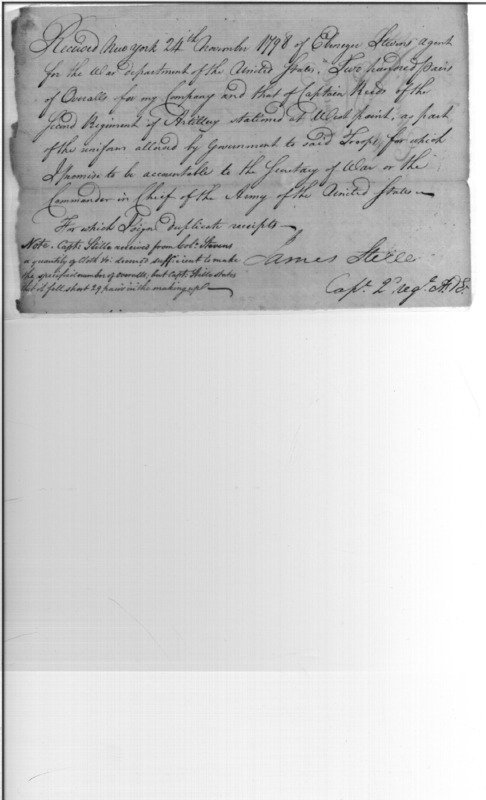 Received New York 24th November 1798 of Ebenezer Stevens agent
for the War department of the United States, Two hundred pairs
of Overalls for my Company and that of Captain Reeds of the
Second Regiment of Artillery stationed at West point; as part
of the uniform allowed by Government to said Troops, for which
I promise to be accountable to the Secretary of War or the
Commander in Chief of the Army of the United States
For which I sign duplicate receipts
Note. Capt. Stille received from Col. Stevens
a quantity of cloth &c deemed sufficient to make
the specified number of overalls, but Capt. Stille states
that it fell short 29 pairs in the making up
James Stille
Capt. 2d regt. A. & E.